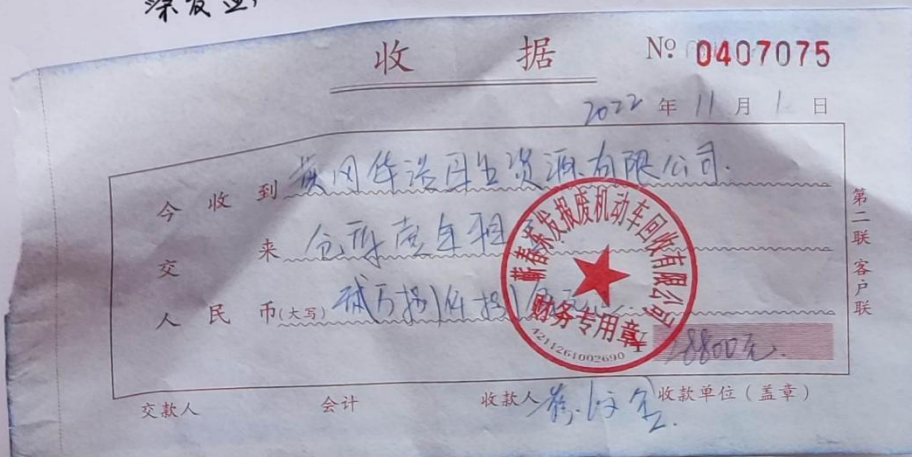 收 据
№ 0407075
2022 年 11 月 1 日
今收到 黄冈华送再生资源有限公司.
交来 仓库壹年租
人民币(大写) 贰万捌仟捌佰元
¥ 28800元.
蕲春荣发报废机动车回收有限公司
财务专用章
4211261002690
第二联 客户联
交款人 会计 收款人 收款单位(盖章)